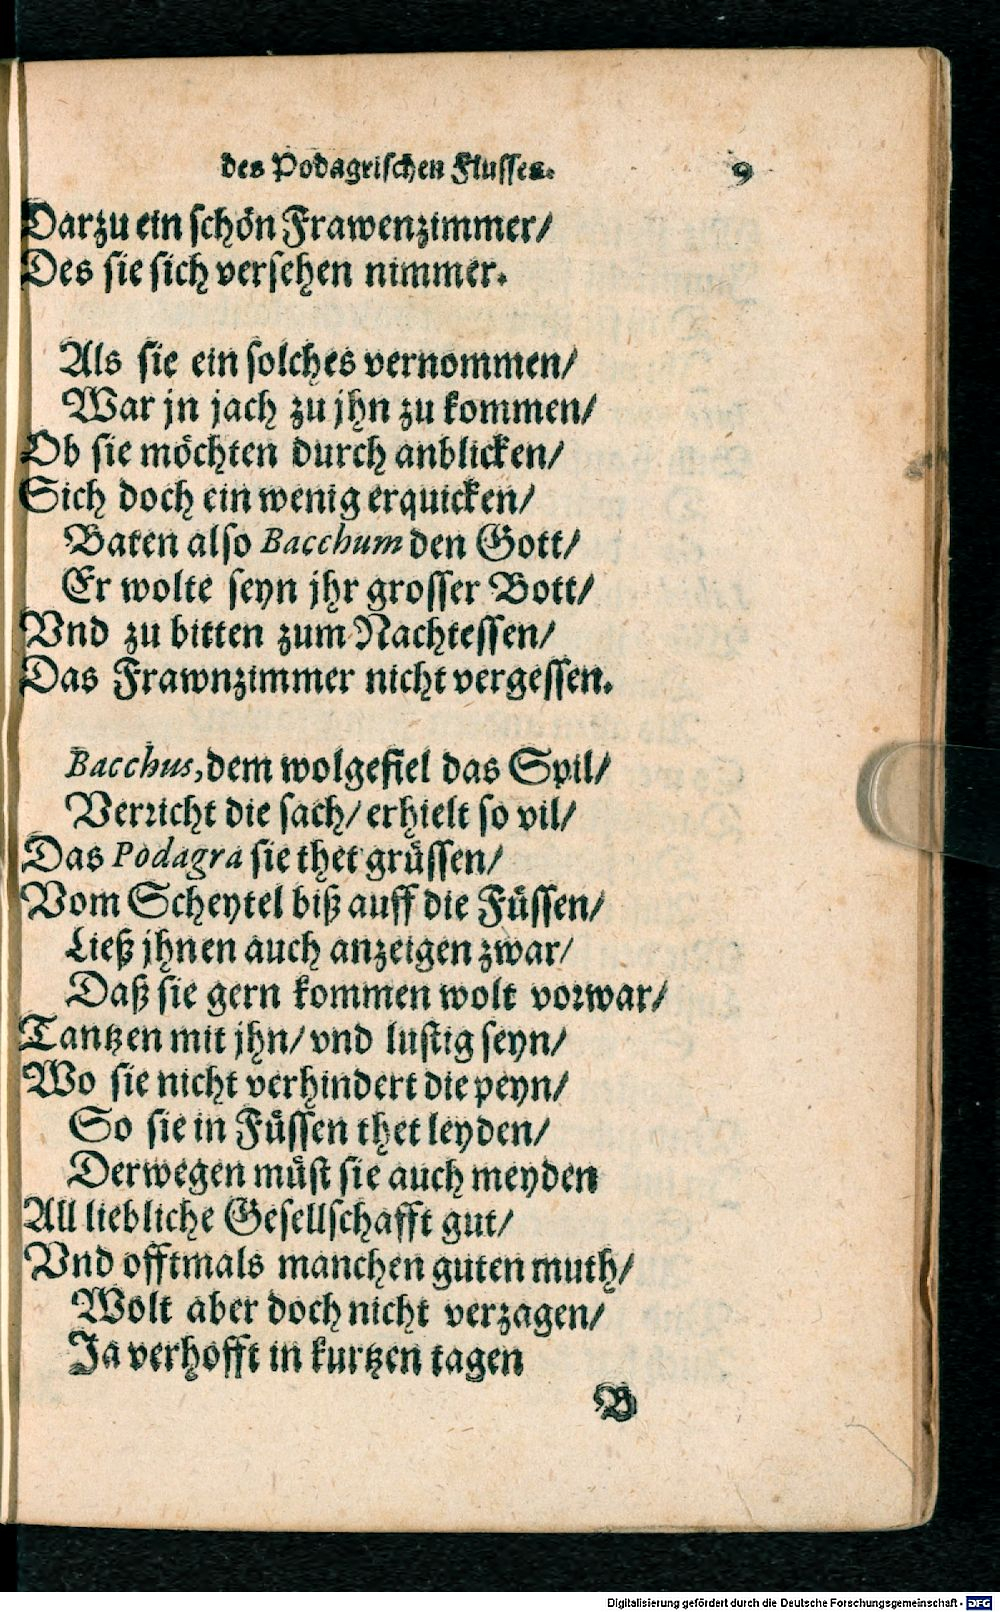 des Podagrischen Flusses. 9
Darzu ein schön Frawenzimmer/
Des sie sich versehen nimmer.
Als sie ein solches vernommen/
War jn jach zu jhn zu kommen/
Ob sie möchten durch anblicken/
Sich doch ein wenig erquicken/
Baten also Bacchum den Gott/
Er wolte seyn jhr grosser Bott/
Vnd zu bitten zum Nachtessen/
Das Frawnzimmer nicht vergessen.
Bacchus, dem wolgefiel das Spil/
Verricht die sach/ erhielt so vil/
Das Podagra sie thet grüssen/
Vom Scheytel biß auff die Füssen/
Ließ jhnen auch anzeigen zwar/
Daß sie gern kommen wolt vorwar/
Tantzen mit jhn/ vnd lustig seyn/
Wo sie nicht verhindert die peyn/
So sie in Füssen thet leyden/
Derwegen müst sie auch meyden
All liebliche Gesellschafft gut/
Vnd offtmals manchen guten muth/
Wolt aber doch nicht verzagen/
Ja verhofft in kurtzen tagen
B
Digitalisierung gefördert durch die Deutsche Forschungsgemeinschaft - DFG